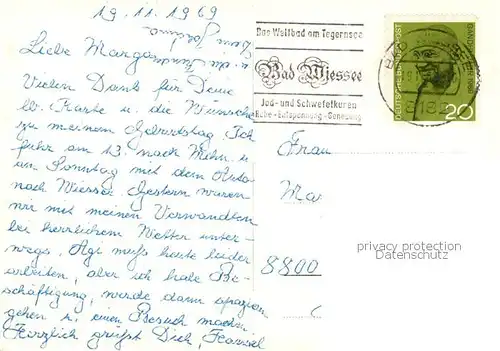 19. 11. 1969
Liebe Margo
Vielen Dank für Deine
lb. Karte u. die Wünsche
zu meinem Geburtstag. Ich
fuhr am 13. nach Mchn. u.
am Sonntag mit dem Auto
nach Wiessee. Gestern waren
wir mit meinen Verwandten
bei herrlichem Wetter unter-
wegs. Agi muß heute leider
arbeiten, aber ich habe Be-
schäftigung, werde dann spazieren
gehen u. einen Besuch machen.
Herzlich grüßt Dich,
Das Weltbad am Tegernsee
Bad Wiessee
Jod- und Schwefelkuren
Ruhe - Entspannung - Genesung
DEUTSCHE BUNDESPOST
20
Frau
Ma
8800
privacy protection
Datenschutz